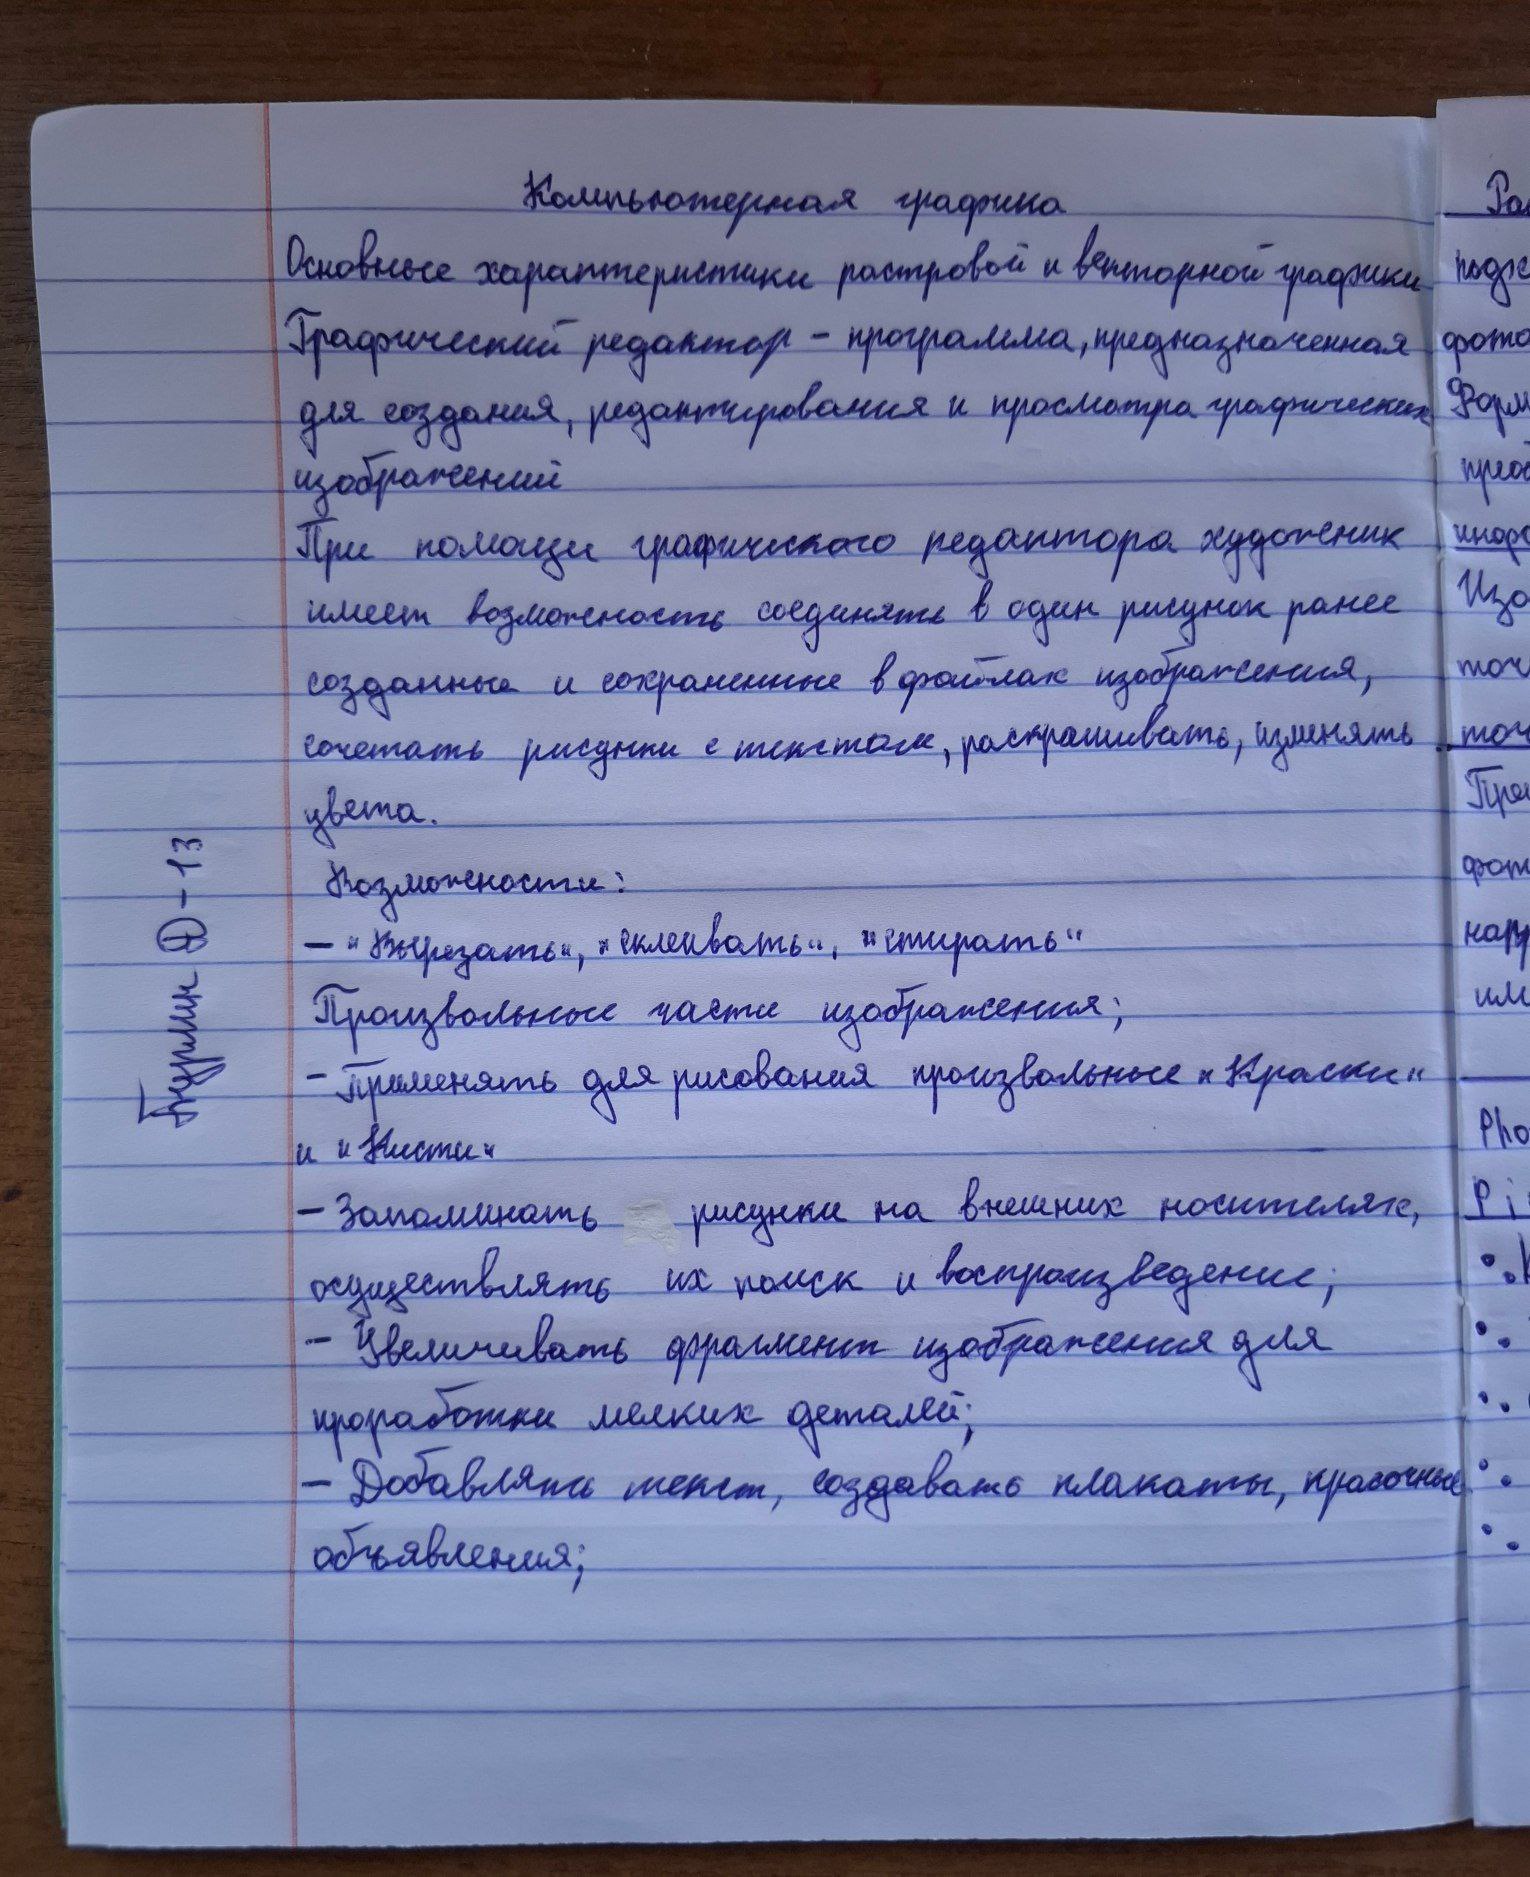 Компьютерная графика
Основные характеристики растровой и векторной графики
Графический редактор – программа, предназначенная
для создания, редактирования и просмотра графических
изображений
При помощи графического редактора художник
имеет возможность соединять в один рисунок ранее
созданные и сохраненные в файлах изображения,
сочетать рисунки с текстом, раскрашивать, изменять
цвета.
Возможности:
– "Вырезать", "склеивать", "стирать"
Произвольные части изображения;
– Применять для рисования произвольные "Краски"
и "Кисти"
– Запоминать рисунки на внешних носителях,
осуществлять их поиск и воспроизведение;
– Увеличивать фрагмент изображения для
проработки мелких деталей;
– Добавлять текст, создавать плакаты, красочные
объявления;
Бурмин Ф-13
Ра
подж
фото
Форм
прео
инфо
Изо
точ
точ
При
фот
нар
им
Pho
Pi